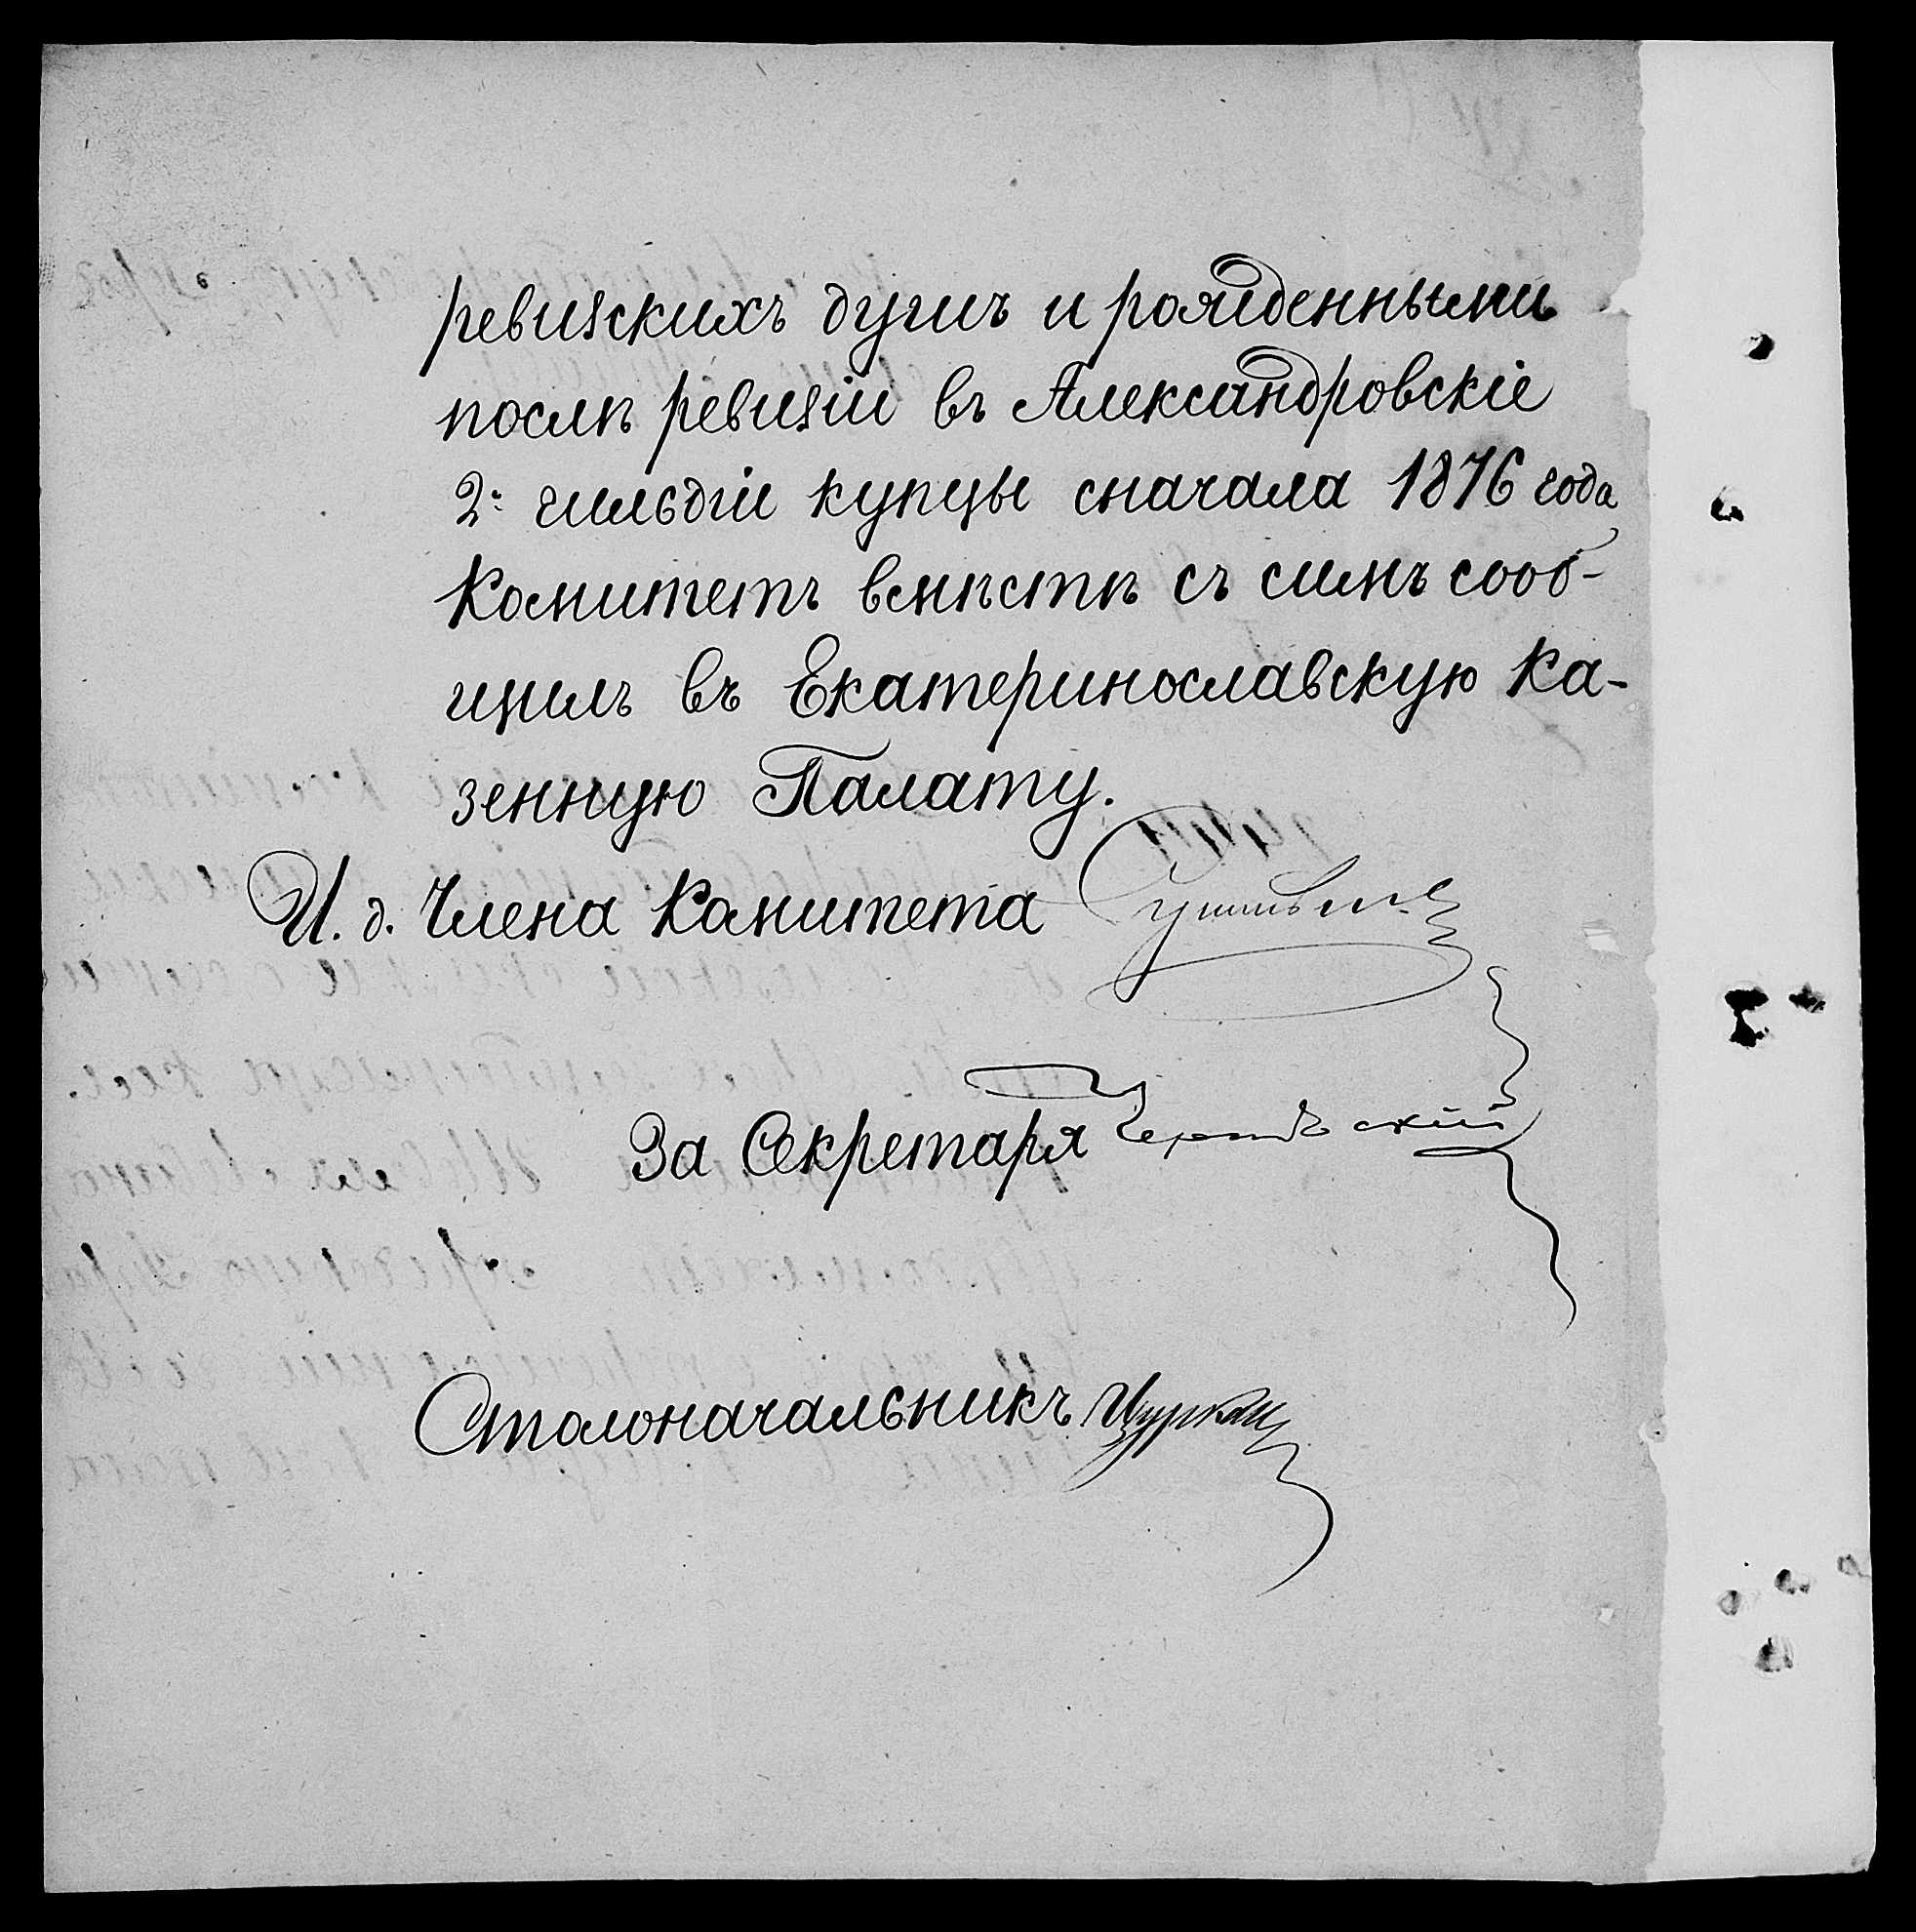 ревизскихъ душъ и рожденными
послѣ ревизіи въ Александровскіе
2й гильдіи купцы сначала 1876 года
Комитетъ вмѣстѣ съ симъ сооб-
щилъ въ Екатеринославскую Ка-
зенную Палату.
И. д. Члена Комитета
За Секретаря
Столоначальникъ Цуркан